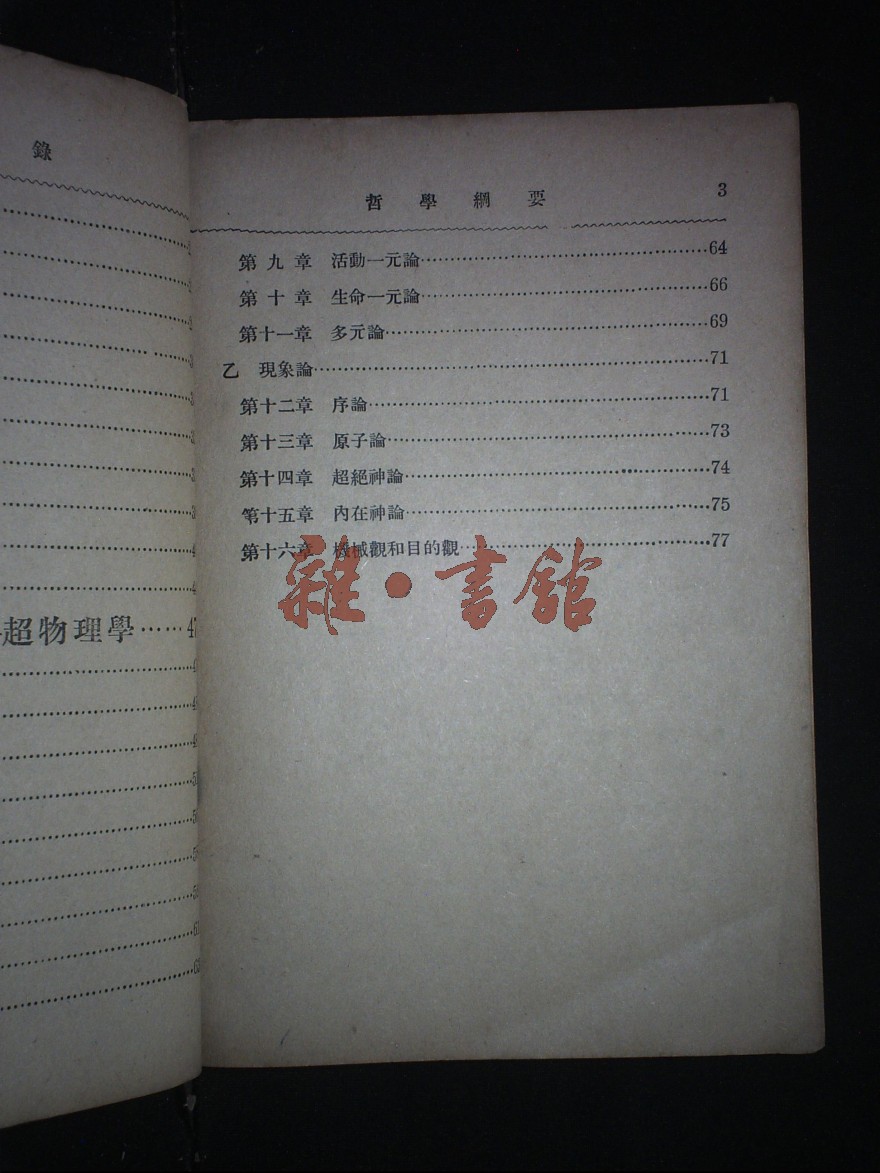 錄
超物理學……47
哲學綱要 3
第九章 活動一元論……64
第十章 生命一元論……66
第十一章 多元論……69
乙 現象論……71
第十二章 序論……71
第十三章 原子論……73
第十四章 超絕神論……74
第十五章 內在神論……75
第十六章 機械觀和目的觀……77
雜·書館